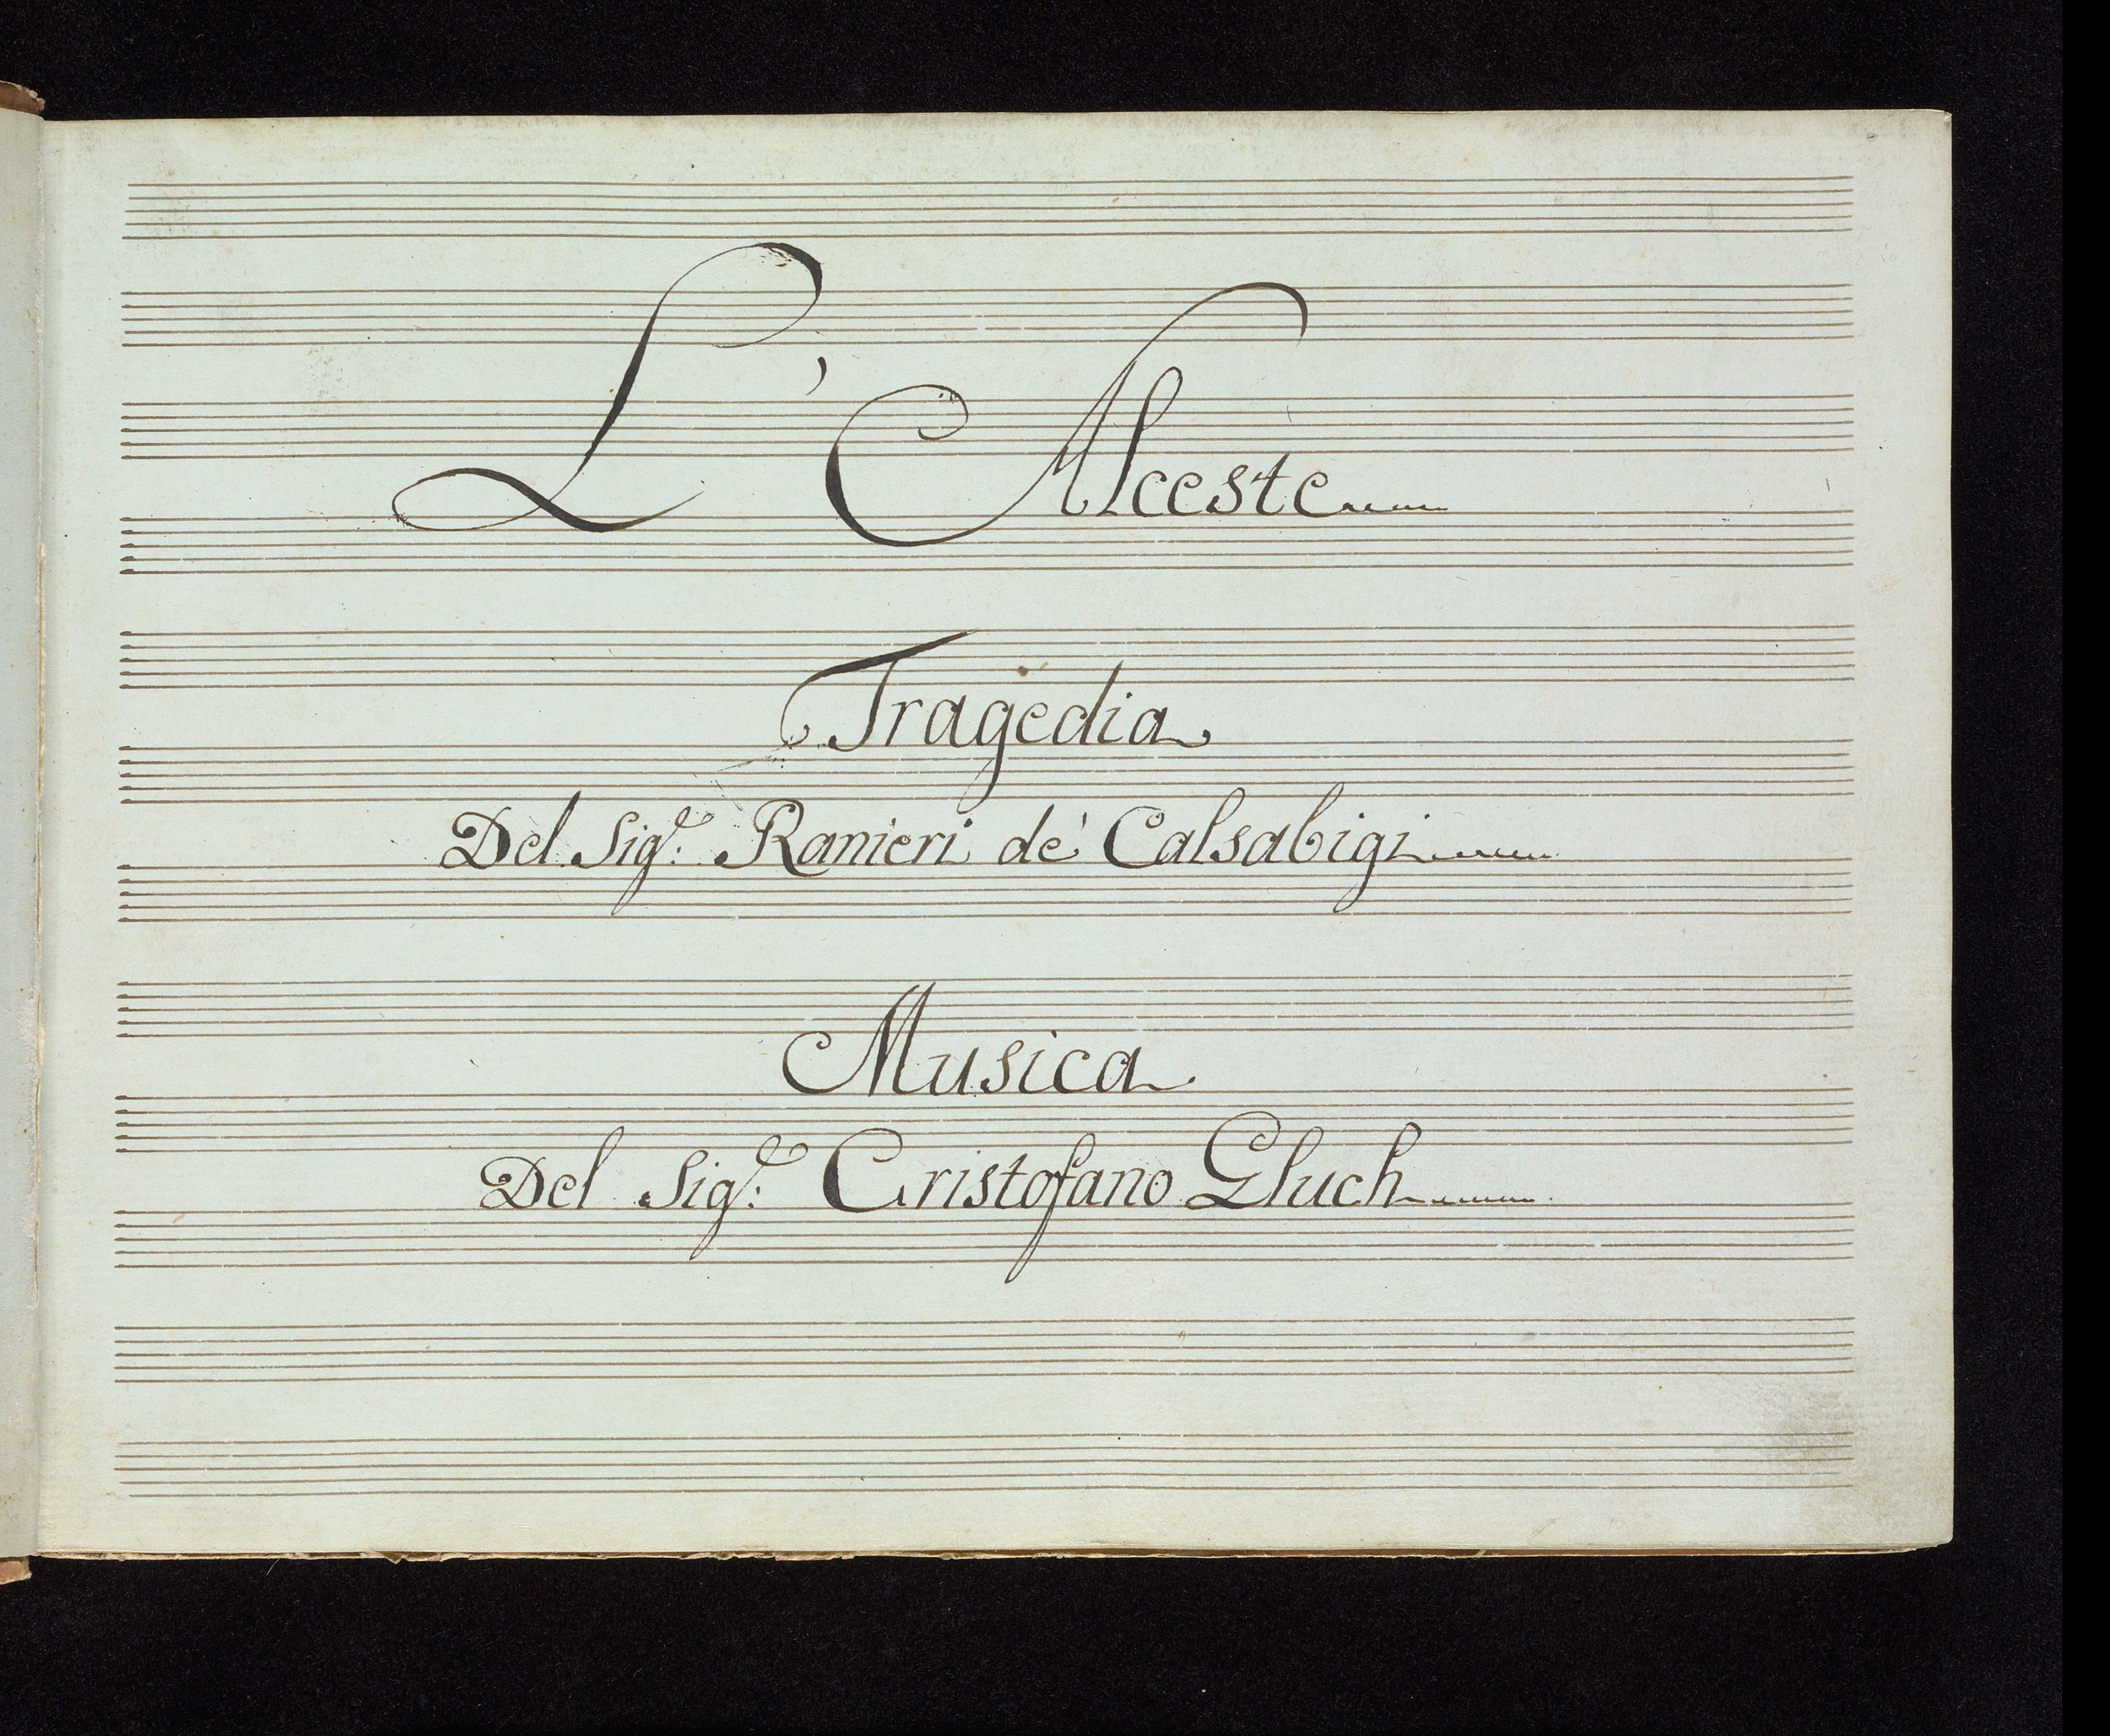 L'Alceste
Tragedia
Del Sig.r Ranieri de' Calsabigi
Musica
Del Sig.r Cristofano Gluch